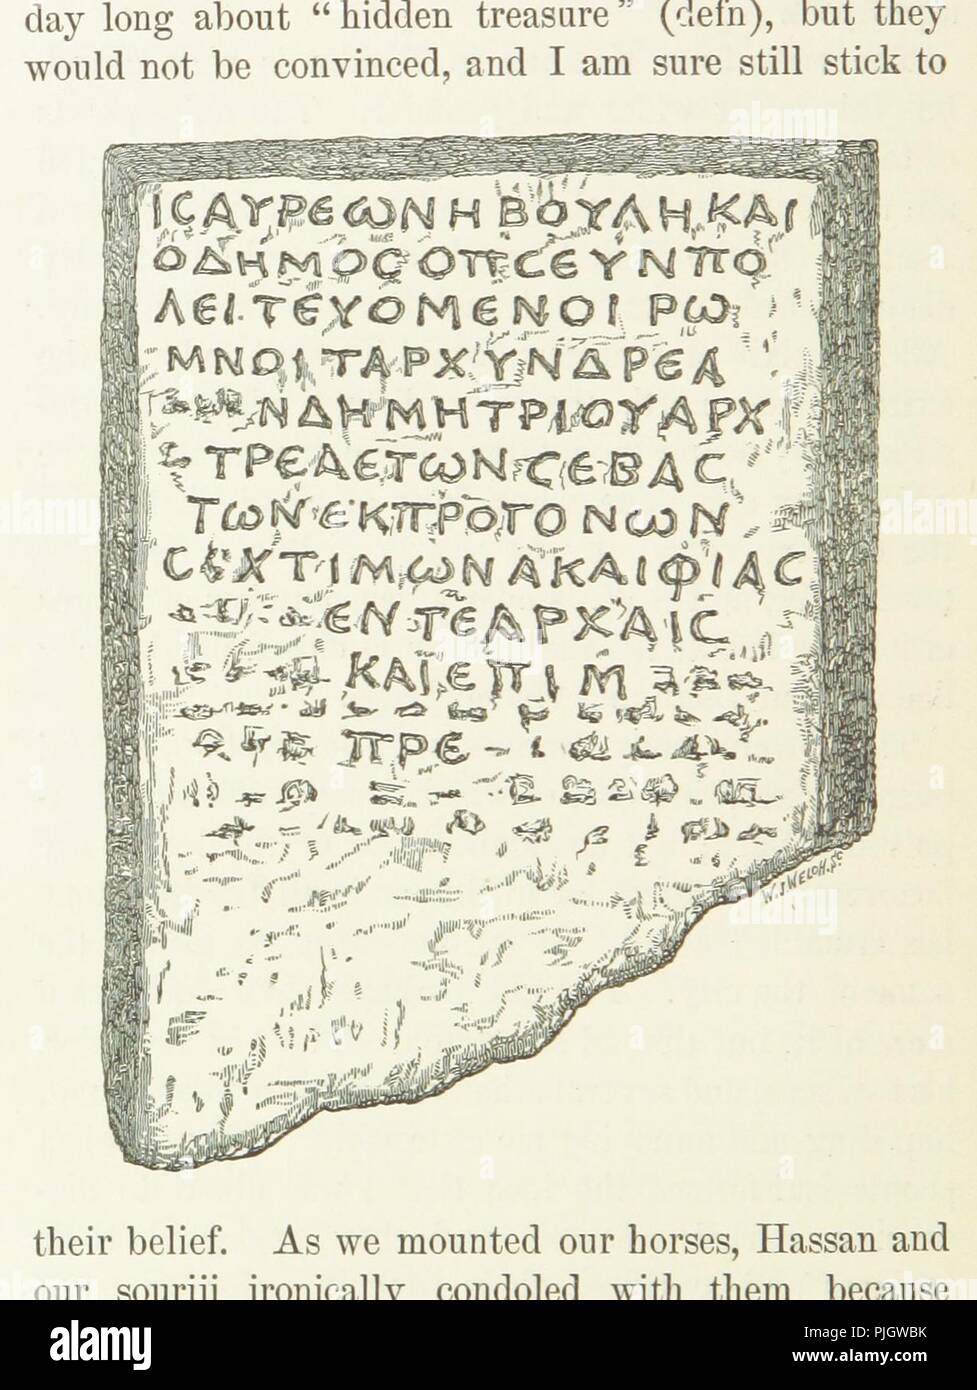 day long about “hidden treasure” (defn), but they
would not be convinced, and I am sure still stick to
ΙϹΑΥΡΕωΝΗΒΟΥΛΗΚΑΙ
ΟΔΗΜΟϹΟΠϹΕΥΝΠΟ
ΛΕΙΤΕΥΟΜΕΝΟΙ Ρω
ΜΝΟΙΤΑΡΧΥΝΔΡΕΑ
ΝΔΗΜΗΤΡΙΟΥΑΡΧ
ΤΡΕΔΕΤωΝϹΕΒΑϹ
ΤωΝΕΚΠΡΟΓΟΝωΝ
ΤΙΜωΝΑΚΑΙΦΙΑϹ
ΕΝΤΕΑΡΧΑΙϹ
ΚΑΙΕΠΙΜ
ΠΡΕ
W.J.WELCH.Sc
their belief. As we mounted our horses, Hassan and
our souriji ironically condoled with them because
alamy
Image ID: PJGWBK
www.alamy.com